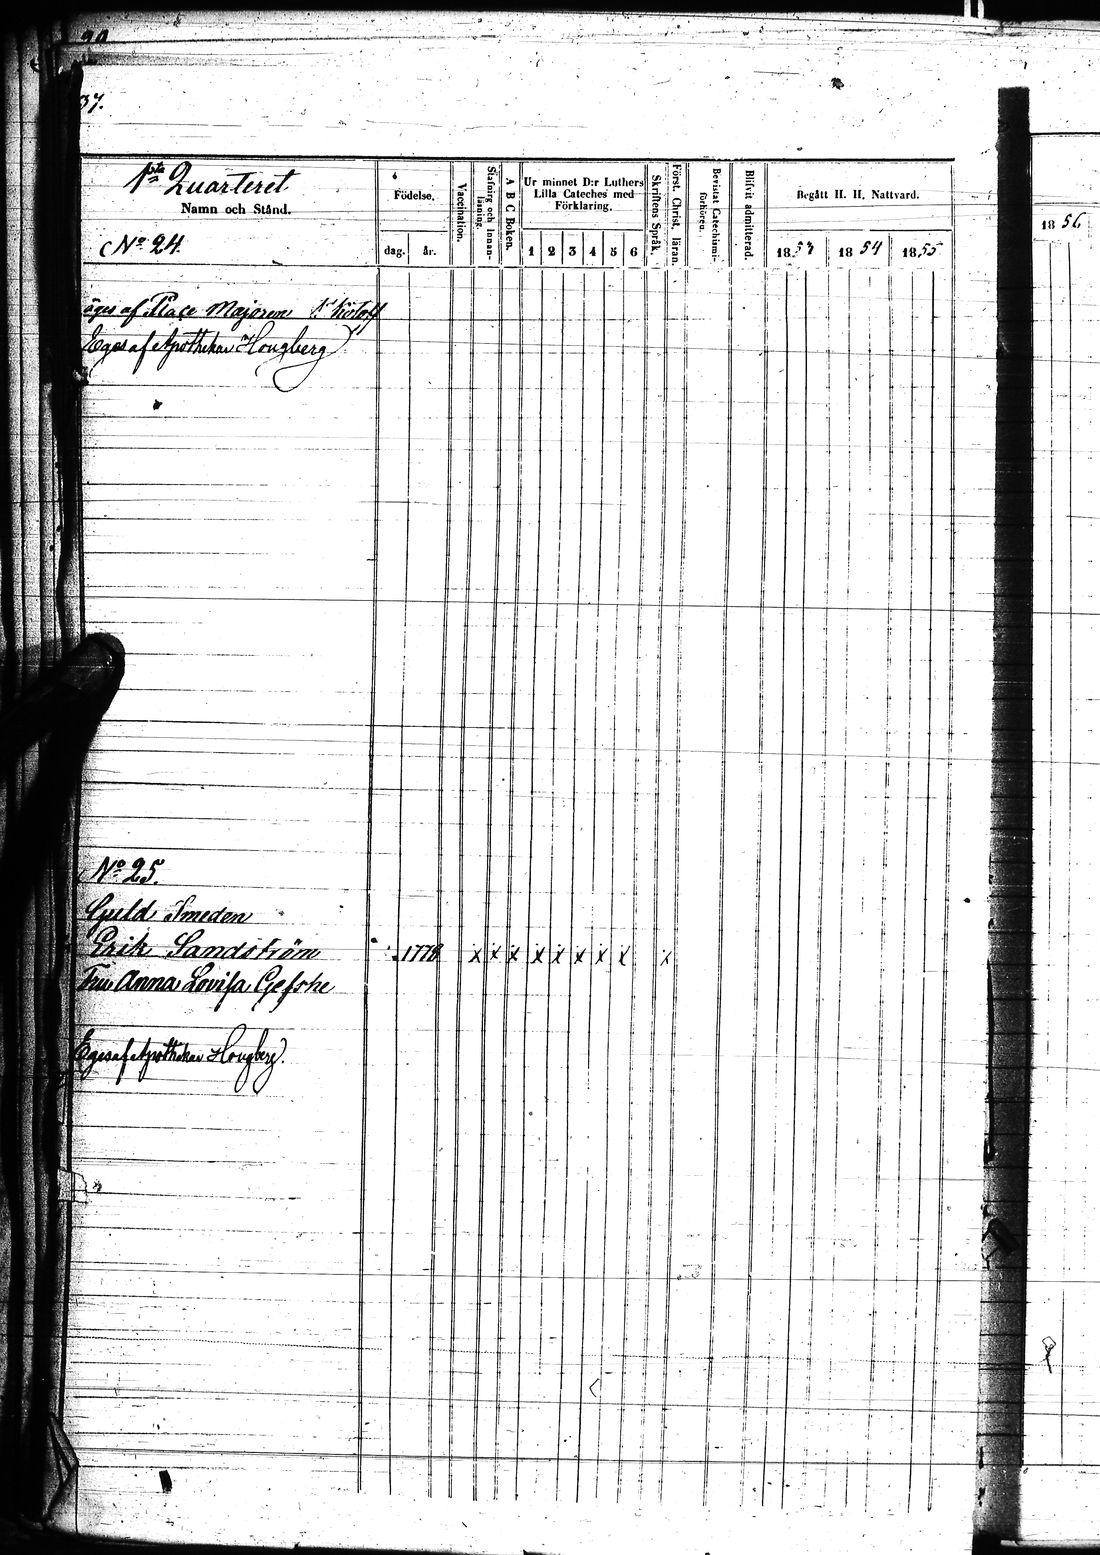 37.
1sta Quarteret
Namn och Stånd.
Födelse.
dag. år.
Vaccination.
Stafning och Innan-läsning.
A B C Boken.
Ur minnet D:r Luthers
Lilla Cateches med
Förklaring.
1 2 3 4 5 6
Skriftens Språk.
Först. Christ. läran.
Bevistat Catechismi-förhören.
Blifvit admitterad.
Begått H. H. Nattvard.
1853 1854 1855
1856
No 24.
äges af Place Majoren
Eges af Apothekar Hougberg
No 25.
Guld Smeden
Erik Sandström 1778 x x x x x x x x x
Fru Anna Lovisa Gefshe
Eges af Apothekar Hougberg.